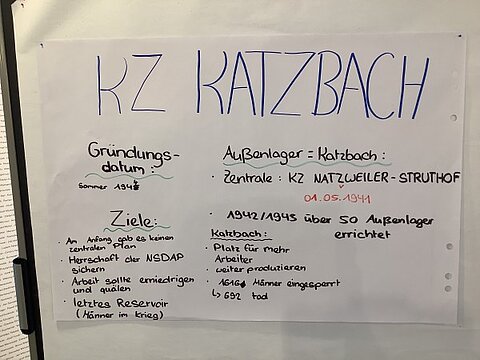 KZ KATZBACH
Gründungs-
datum:
Sommer 194
Ziele:
· Am Anfang gab es keinen
zentralen Plan
· Herrschaft der NSDAP
sichern
· Arbeit sollte erniedrigen
und quälen
· letztes Reservoir
(Männer im Krieg)
Außenlager = Katzbach:
· Zentrale: KZ NATZWEILER-STRUTHOF
01.05.1941
· 1942/1945 über 50 Außenlager
errichtet
Katzbach:
· Platz für mehr
Arbeiter
· weiter produzieren
· 1616 Männer eingesperrt
↳ 692 tod